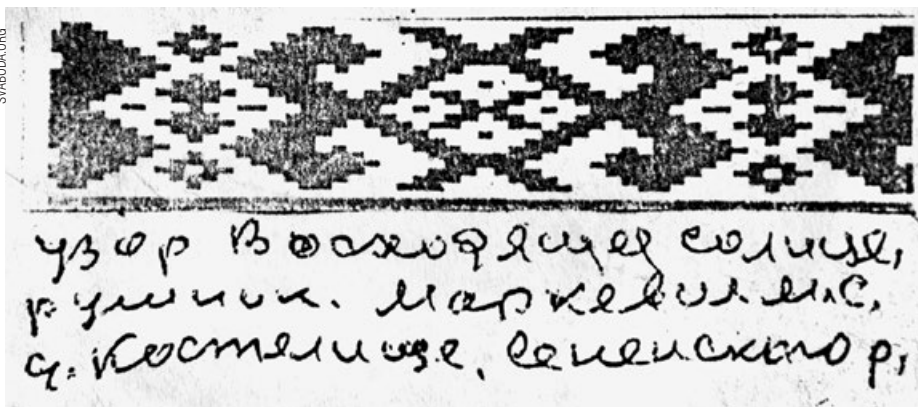 SVABODA.ORG
узор Восходящее солнце,
рушник. Маркевич М.С.
д. Костелище, Сененского р,